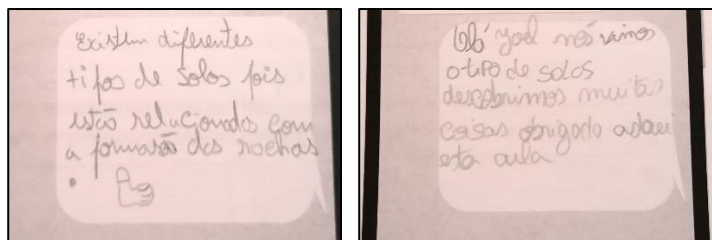 Existem diferentes
tipos de solos pois
estão relucionados com
a formasão das rochas
.
Olá Yoel nós vimos
o tipo de solos
descobrimos muitas
coisas obrigado adorei
esta aula